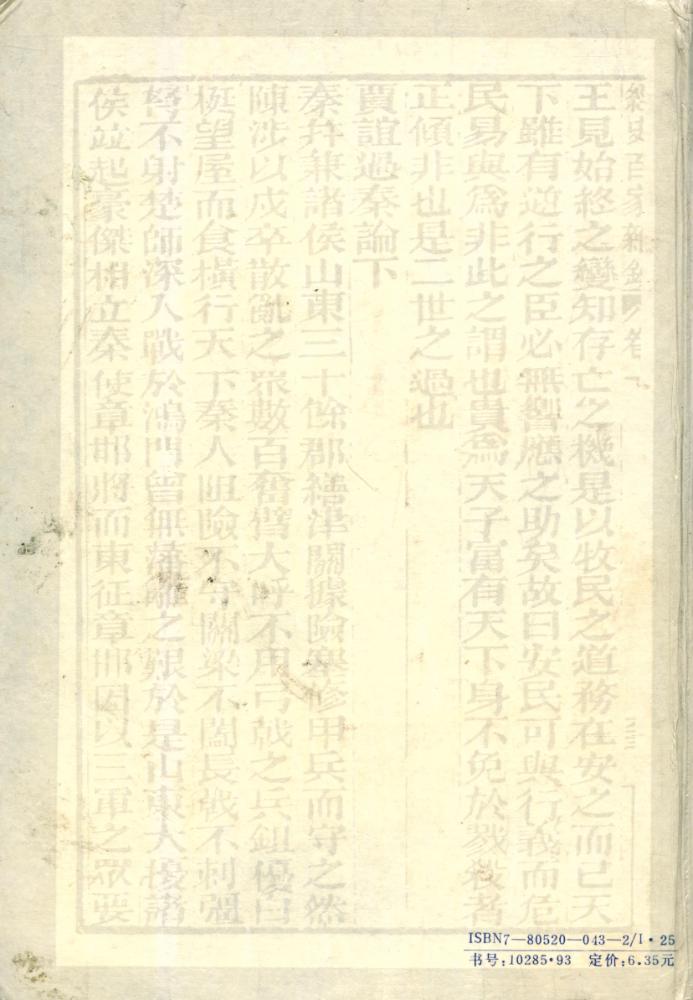 經史百家雜鈔 卷一
王見始終之變知存亡之機是以牧民之道務在安之而已天
下雖有逆行之臣必無響應之助矣故曰安民可與行義而危
民易與爲非此之謂也貴爲天子富有天下身不免於戮殺者
正傾非也是二世之過也
賈誼過秦論下
秦并兼諸侯山東三十餘郡繕津關據險塞修甲兵而守之然
陳涉以戍卒散亂之眾數百奮臂大呼不用弓戟之兵鉏櫌白
梃望屋而食橫行天下秦人阻險不守關梁不闔長戟不刺彊
弩不射楚師深入戰於鴻門曾無藩籬之艱於是山東大擾諸
侯竝起豪傑相立秦使章邯將而東征章邯因以三軍之眾要
ISBN7—80520—043—2/I·25
书号:10285·93 定价:6.35元